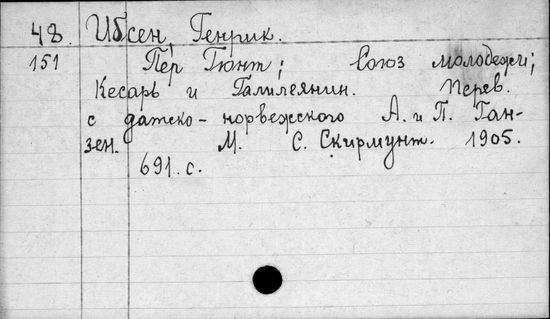 48. Ибсен, Генрик.
151 Пер Гюнт; Союз молодежи;
Кесарь и Галилеянин. Перев.
с датско-норвежского А. и П. Ган-
зен. М. С. Скирмунт. 1905.
691. с.